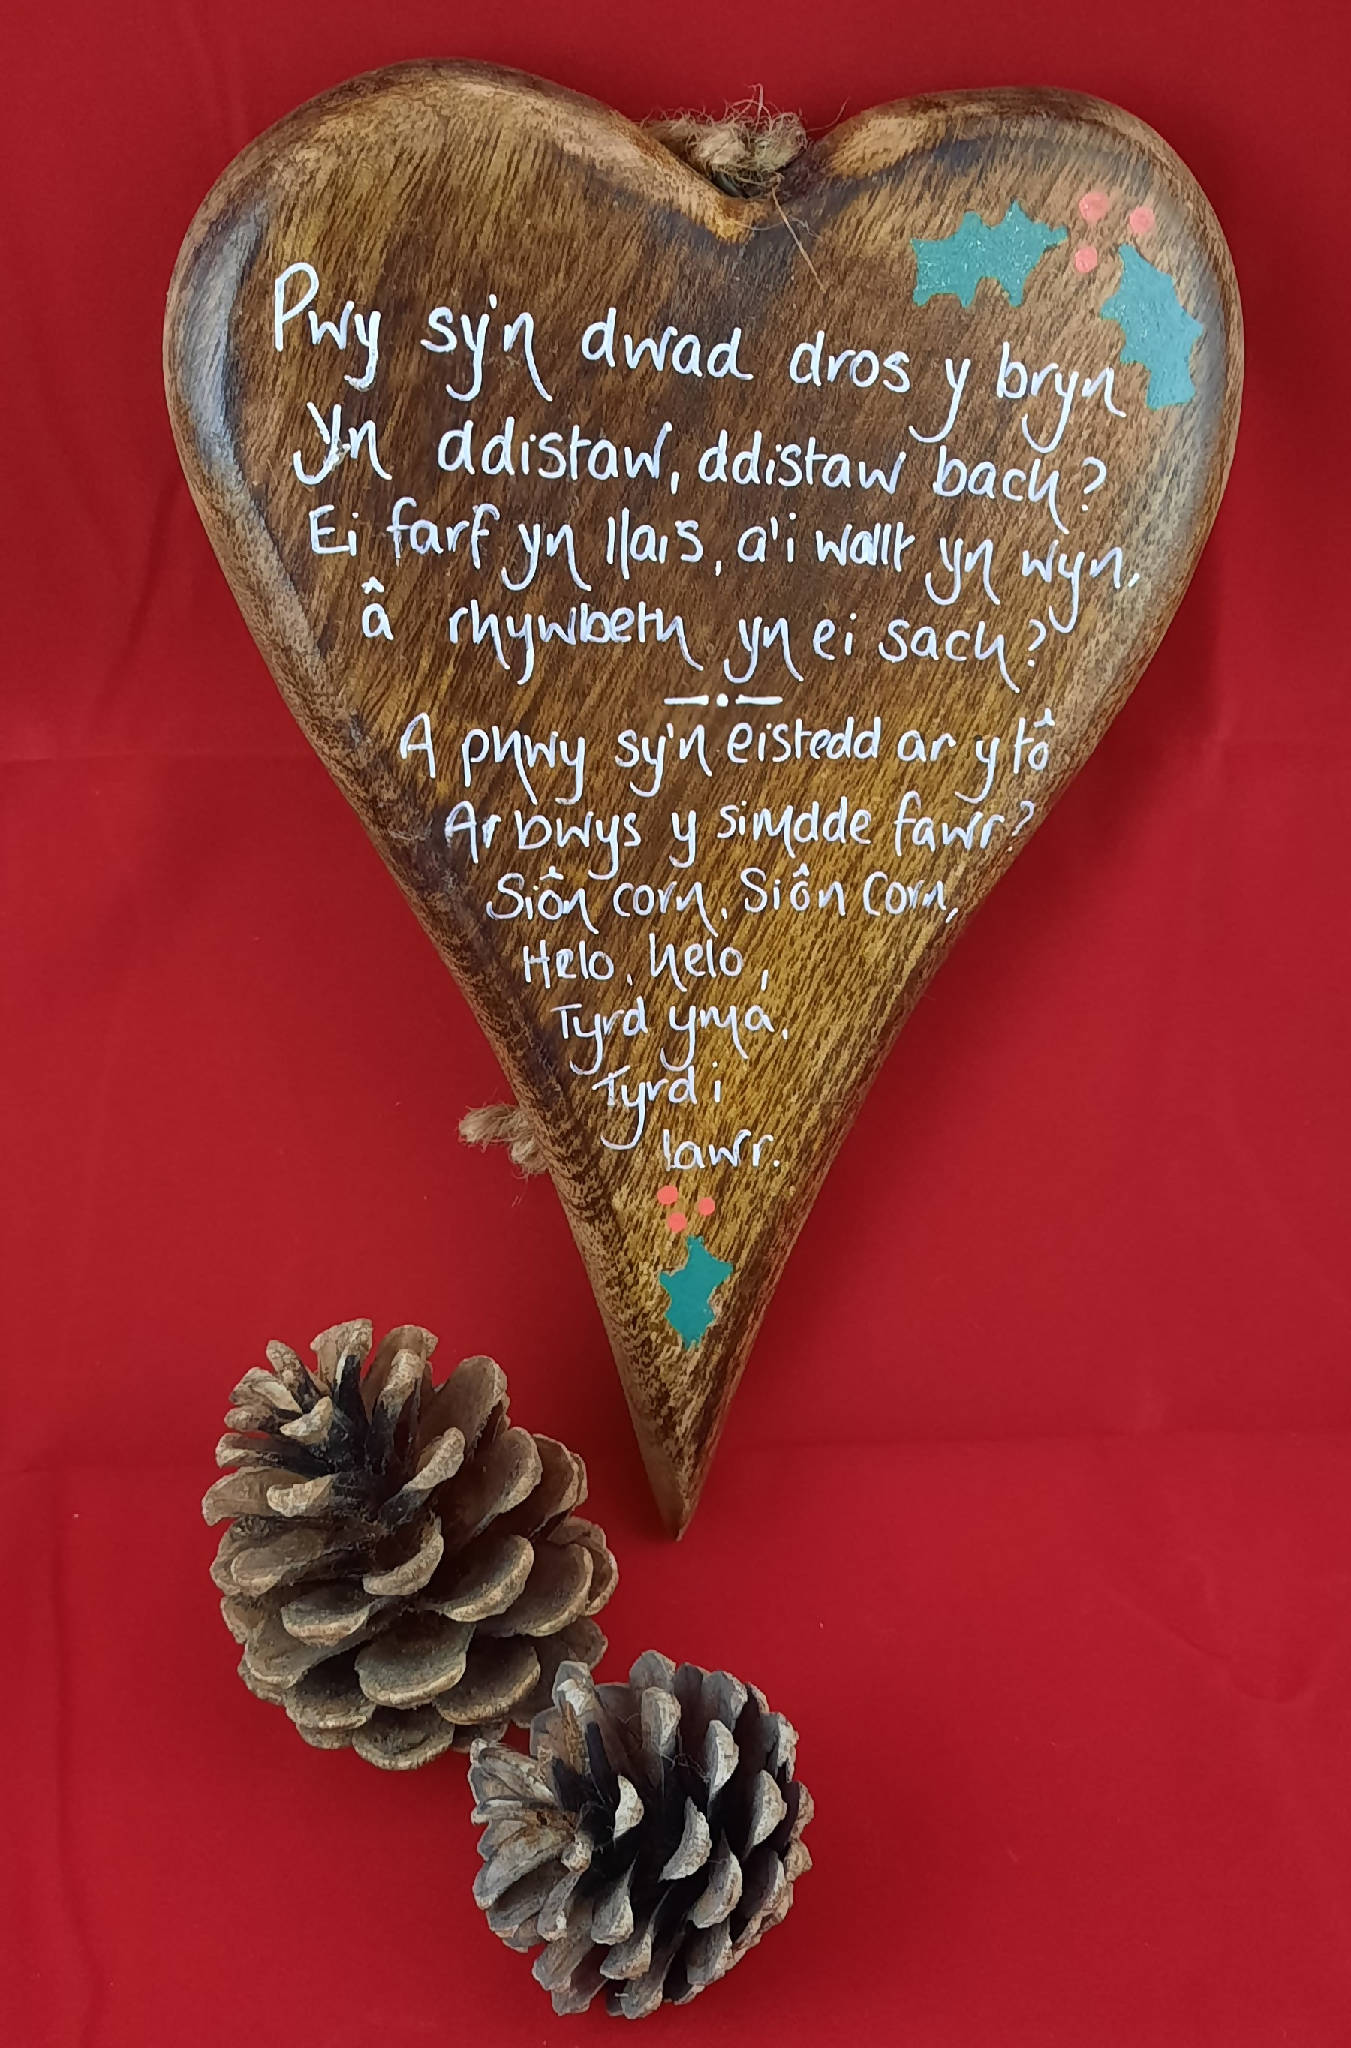 Pwy sy'n dwad dros y bryn
Yn ddistaw, ddistaw bach?
Ei farf yn llais, a'i wallt yn wyn,
â rhywbeth yn ei sach?
A phwy sy'n eistedd ar y tô
Ar bwys y simdde fawr?
Siôn corn, Siôn Corn,
Helo, helo,
Tyrd yma,
Tyrd i
lawr.